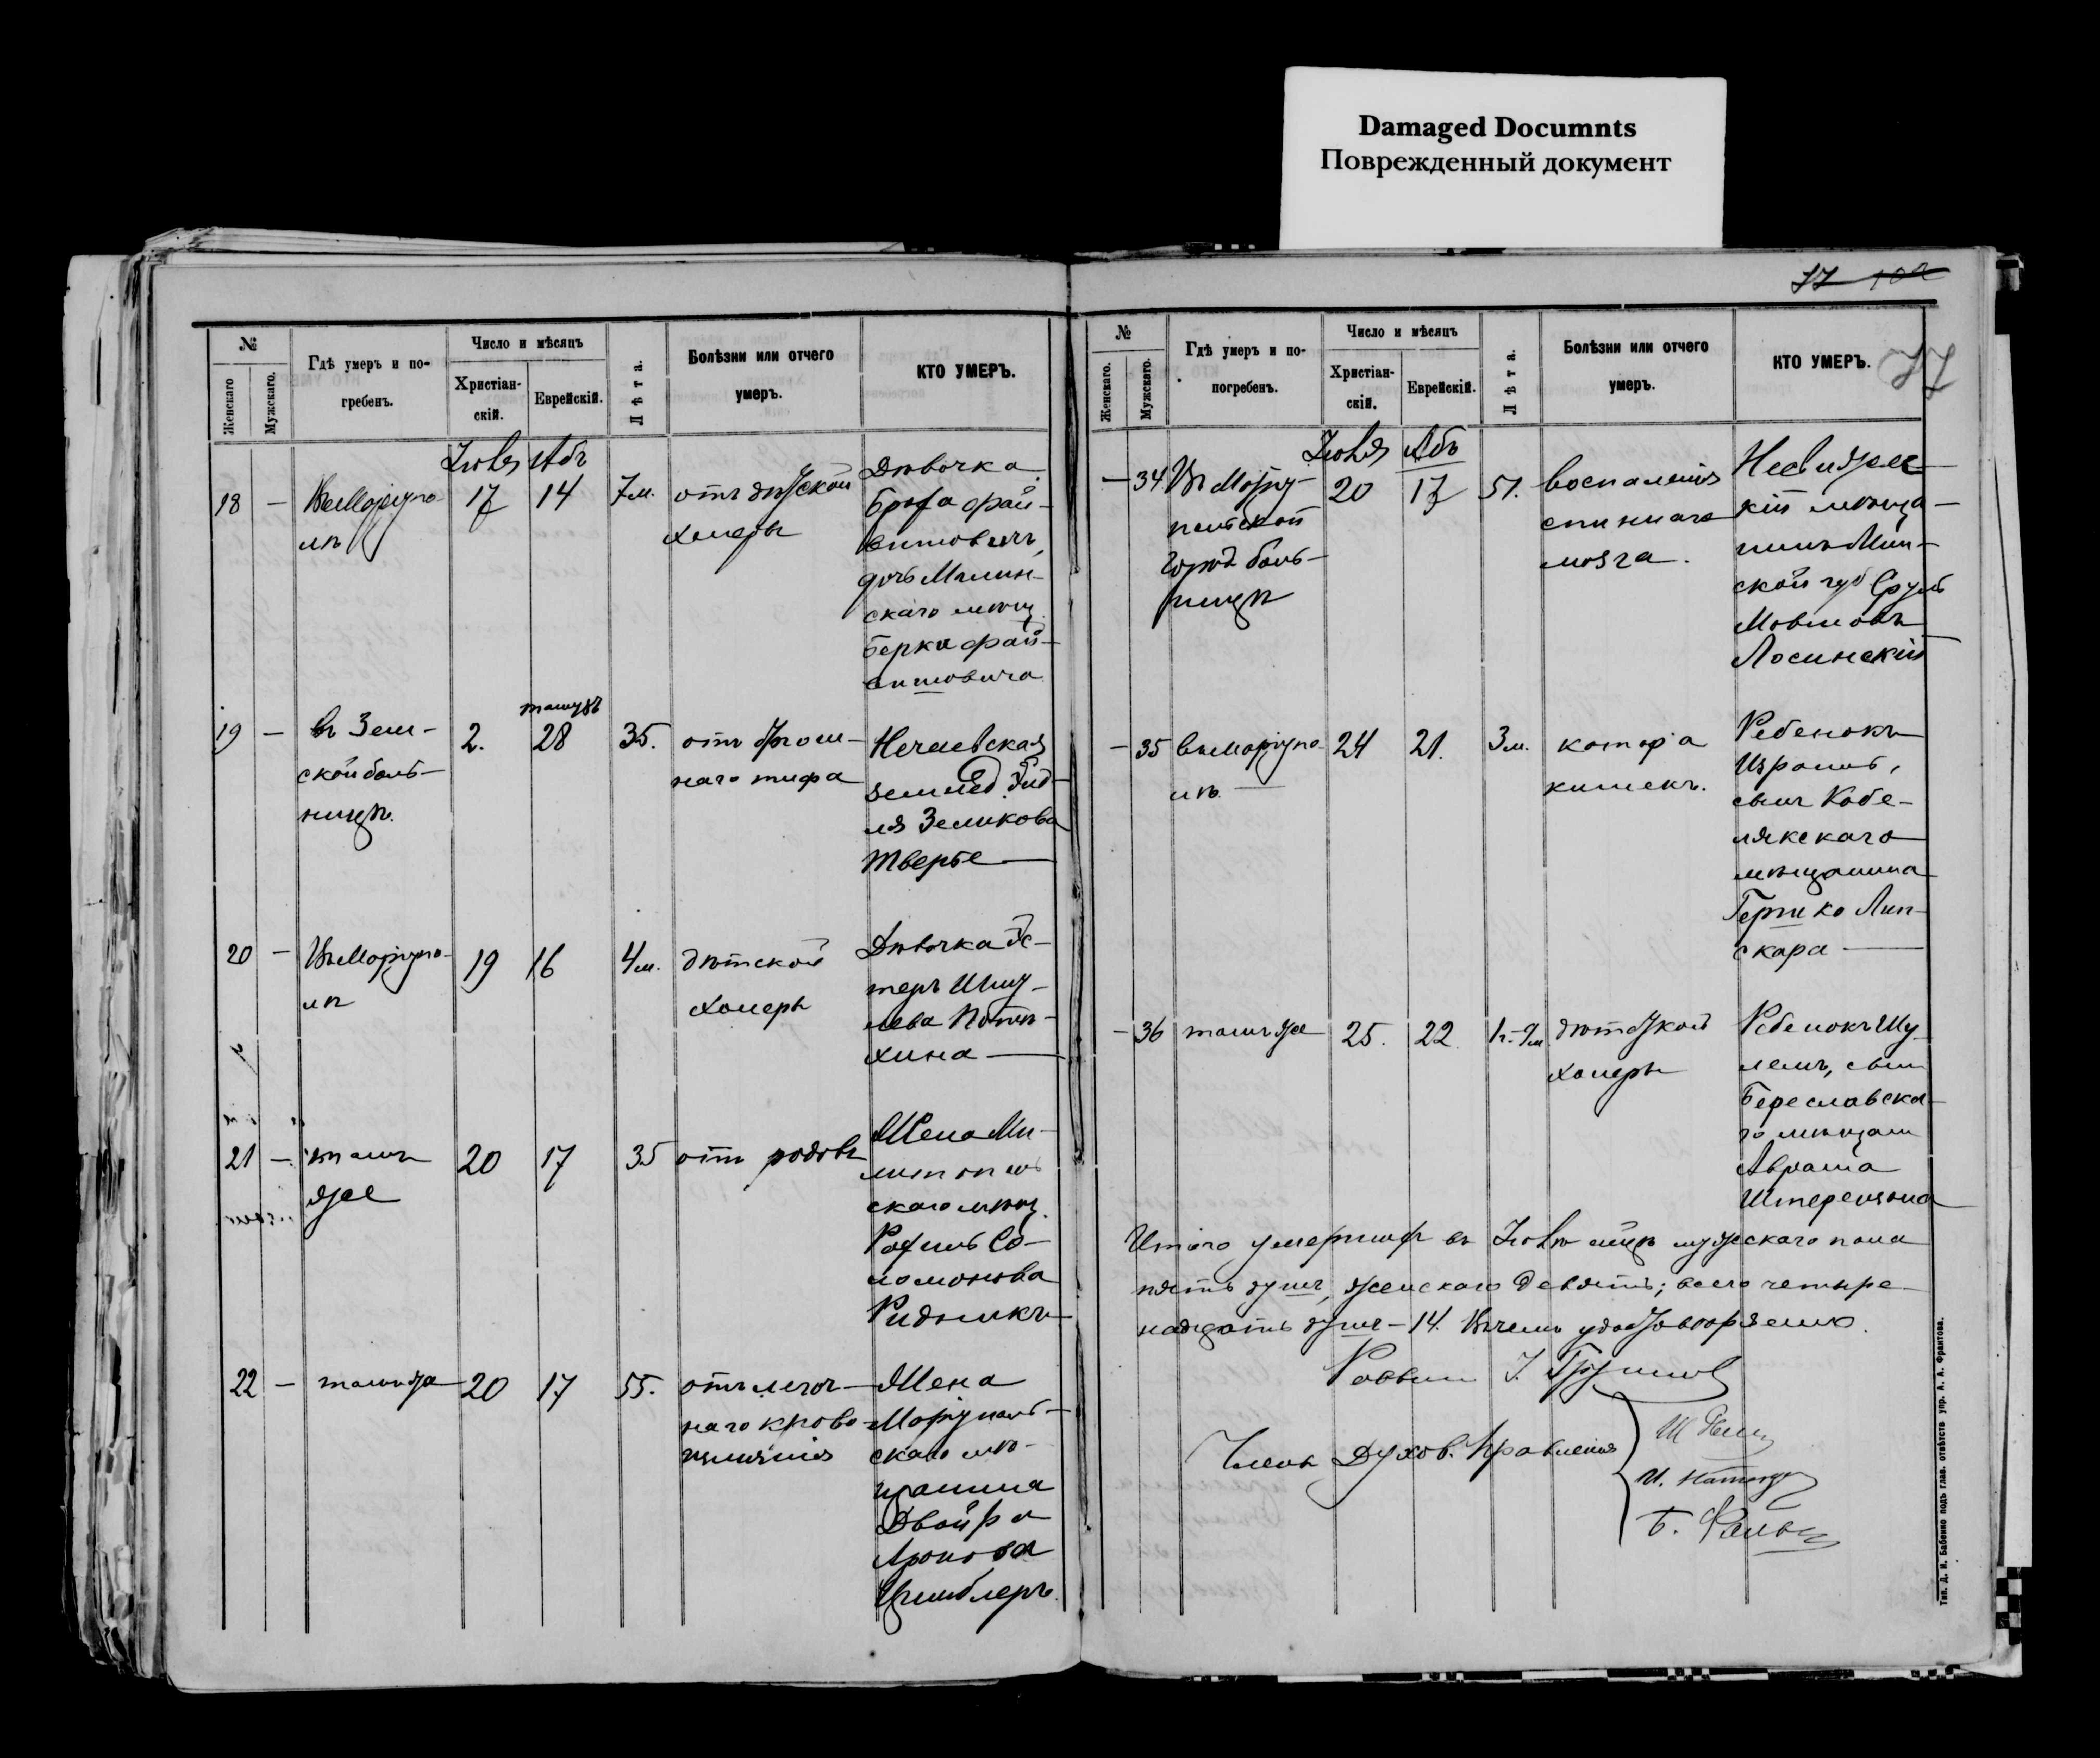 Damaged Documnts
Поврежденный документ
77 102
77
№
Женскаго
Мужскаго.
Гдѣ умеръ и по-
гребенъ.
Число и мѣсяцъ
Христіан-
скій.
Еврейскій.
Лѣта.
Болѣзни или отчего
умеръ.
КТО УМЕРЪ.
Іюля Абъ
18 — Въ Маріупо-
лѣ
17
14
7 м.
отъ дѣтской
холеры
Дѣвочка
Броха Фай-
вишовичъ,
дочь Малин-
скаго мѣщ.
Берки Фай-
вишовича
19 — въ Зем-
ской боль-
ницѣ.
2.
тамузъ
28
35.
отъ брюш-
наго тифа
Нечаевская
землед. Эйд-
ля Зеликова
Тверье
20 — Въ Маріупо-
лѣ
19
16
4 м.
дѣтской
холеры
Дѣвочка Эс-
теръ Шму-
лева
хина
21 — тамъ
же
20
17
35
отъ родовъ
Жена Ме-
литополь
скаго мѣщ.
Рахиль Со-
ломонова
Ридникъ
22 — тамъ же
20
17
55.
отъ легоч-
наго крово-
излиянія
Жена
Маріуполь-
скаго мѣ-
щанина
Двойра
Аронова
Цимблеръ.
№
Женскаго.
Мужскаго.
Гдѣ умеръ и по-
погребенъ.
Число и мѣсяцъ
Христіан-
скій.
Еврейскій.
Лѣта.
Болѣзни или отчего
умеръ.
КТО УМЕРЪ.
Іюля Абъ
— 34 Въ Маріу-
польской
город боль-
ницѣ
20
17
51.
воспаленія
спиннаго
мозга.
Несвижс-
кій мѣща-
нинъ Мин-
ской губ Сруль
Мовшовъ
Лосинскій
— 35 въ Маріупо-
лѣ
24
21.
3 м.
катара
кишекъ.
Ребенокъ
Израиль,
сынъ Кобе-
лякскаго
мѣщанина
Гершко Лип-
скара
— 36 тамъ же
25.
22
1 г. 9 м
дѣтской
холеры
Ребенокъ Шу-
лемъ, сынъ
Береславска-
го мѣщан
Аврама
Штерензона
Итого умершихъ въ Іюлѣ мцѣ мужскаго пола
пять душъ, женскаго девять; всего четыре-
надцать душъ — 14. Въ чемъ удостовѣряемъ.
Раввинъ
Члены Духов. Правленія
Тип. Д. И. Бабенко подъ глав. отвѣтств упр. А. А. Франтова.